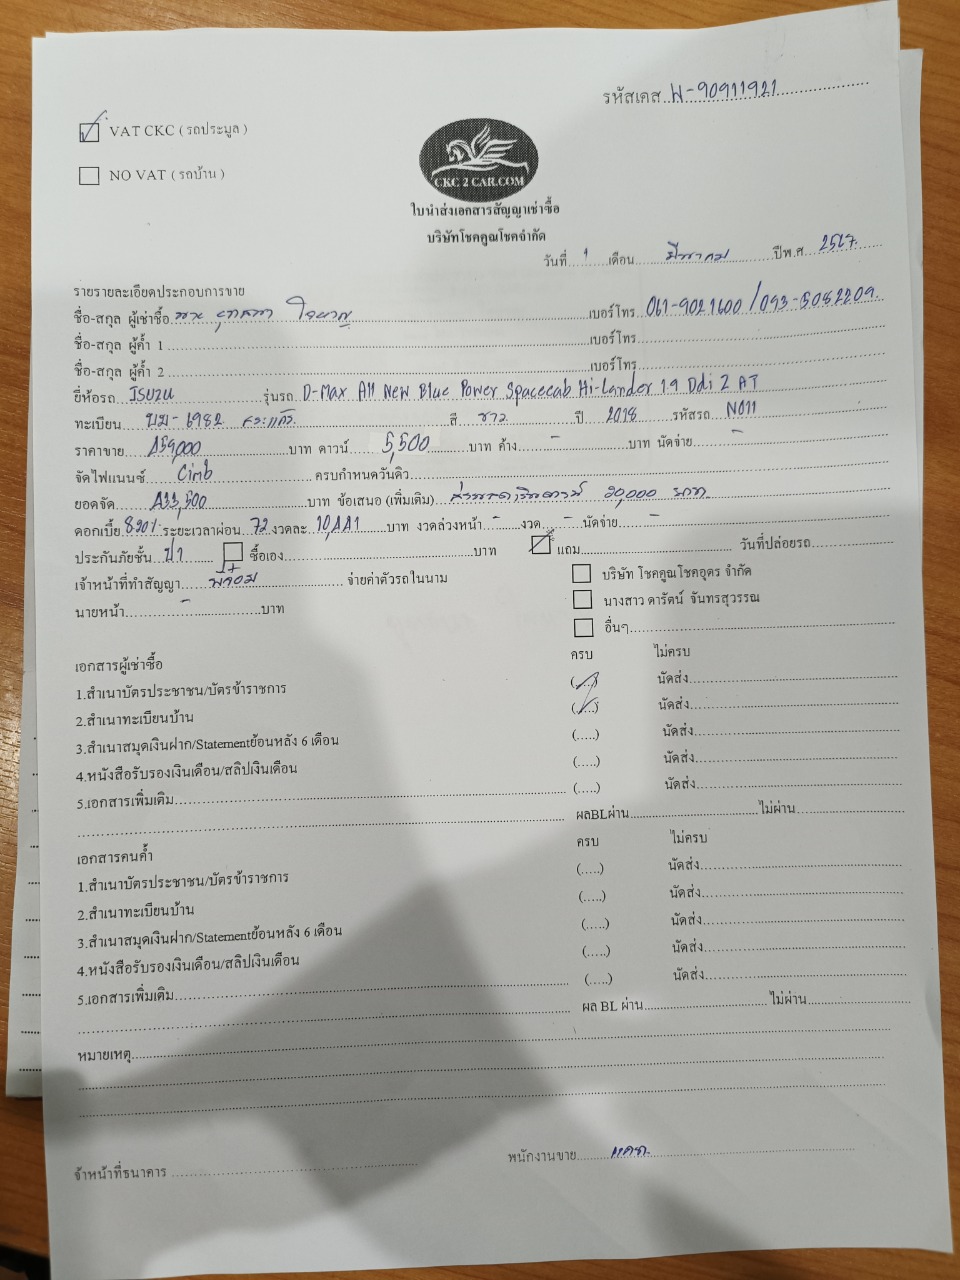 รหัสเคส W-90911921
☑ VAT CKC ( รถประมูล )
☐ NO VAT ( รถบ้าน )
CKC 2 CAR.COM
ใบนำส่งเอกสารสัญญาเช่าซื้อ
บริษัทโชคคูณโชคจำกัด
วันที่ 1 เดือน มีนาคม ปีพ.ศ. 2567
รายรายละเอียดประกอบการขาย
ชื่อ-สกุล ผู้เช่าซื้อ นาย เบอร์โทร 061-9021600 / 093-5082209
ชื่อ-สกุล ผู้ค้ำ 1 เบอร์โทร
ชื่อ-สกุล ผู้ค้ำ 2 เบอร์โทร
ยี่ห้อรถ ISUZU รุ่นรถ D-Max All New Blue Power Spacecab Hi-Lander 1.9 Ddi Z AT
ทะเบียน บม-6982 สระแก้ว สี ขาว ปี 2018 รหัสรถ N011
ราคาขาย 459,000 บาท ดาวน์ 5,500 บาท ค้าง - บาท นัดจ่าย -
จัดไฟแนนซ์ Cimb ครบกำหนดวันดิว
ยอดจัด 433,500 บาท ข้อเสนอ (เพิ่มเติม) 20,000 บาท
ดอกเบี้ย ระยะเวลาผ่อน 72 งวดละ 10,441 บาท งวดล่วงหน้า - งวด - นัดจ่าย -
ประกันภัยชั้น ป1 ☐ ซื้อเอง บาท ☑ แถม วันที่ปล่อยรถ
เจ้าหน้าที่ทำสัญญา จ่ายค่าตัวรถในนาม ☐ บริษัท โชคคูณโชคอุดร จำกัด
นายหน้า - บาท ☐ นางสาว ดารัตน์ จันทรสุวรรณ
☐ อื่นๆ
เอกสารผู้เช่าซื้อ ครบ ไม่ครบ
1.สำเนาบัตรประชาชน/บัตรข้าราชการ (....) นัดส่ง
2.สำเนาทะเบียนบ้าน (....) นัดส่ง
3.สำเนาสมุดเงินฝาก/Statementย้อนหลัง 6 เดือน (.....) นัดส่ง
4.หนังสือรับรองเงินเดือน/สลิปเงินเดือน (.....) นัดส่ง
5.เอกสารเพิ่มเติม (.....) นัดส่ง
ผลBLผ่าน ไม่ผ่าน
เอกสารคนค้ำ ครบ ไม่ครบ
1.สำเนาบัตรประชาชน/บัตรข้าราชการ (.....) นัดส่ง
2.สำเนาทะเบียนบ้าน (.....) นัดส่ง
3.สำเนาสมุดเงินฝาก/Statementย้อนหลัง 6 เดือน (.....) นัดส่ง
4.หนังสือรับรองเงินเดือน/สลิปเงินเดือน (.....) นัดส่ง
5.เอกสารเพิ่มเติม (.....) นัดส่ง
ผล BL ผ่าน ไม่ผ่าน
หมายเหตุ
จ้าหน้าที่ธนาคาร พนักงานขาย